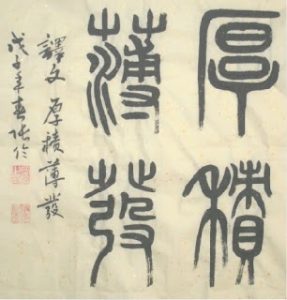 厚積
薄發
譯文 厚積薄發
戊子年春张伦